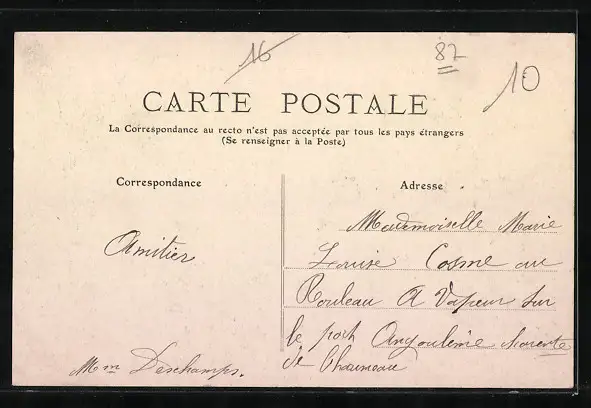 16
87
10
CARTE POSTALE
La Correspondance au recto n'est pas acceptée par tous les pays étrangers
(Se renseigner à la Poste)
Correspondance
Amitier
Mm Deschamps.
Adresse
Mademoiselle Marie
Louise Cosme au
Rouleau A Vapeur Sur
le port Angoulème
de